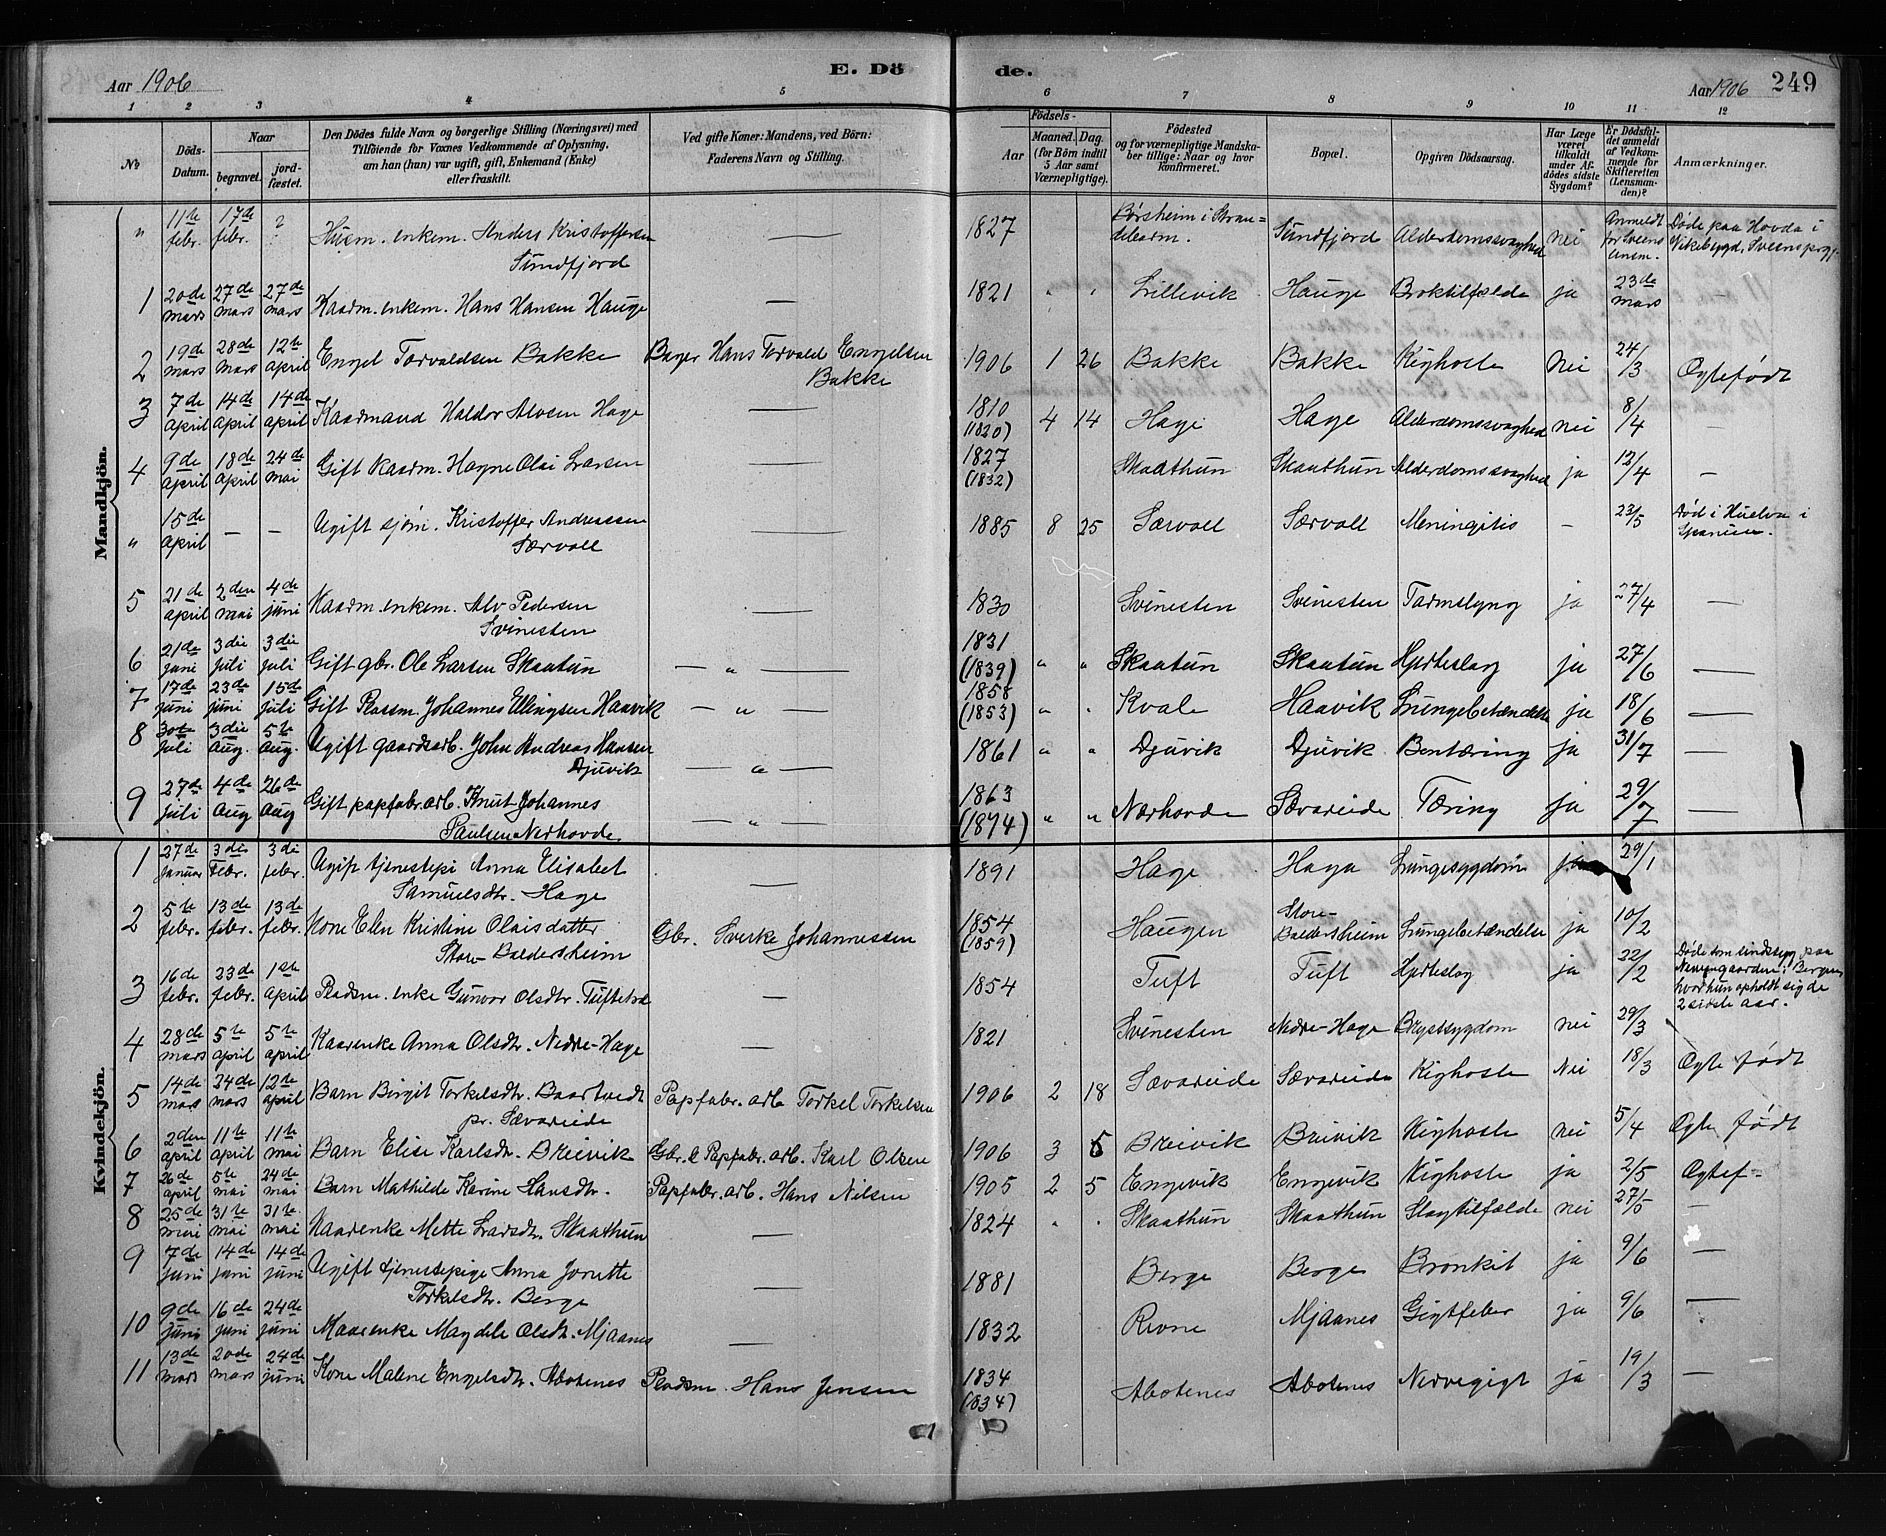 Aar 1906
E. Dö
de.
Aar 1906 249
1 2 3 4 5 6 7 8 9 10 11 12
No
Döds-Datum.
Naar
begravet.
jord-fæstet.
Den Dödes fulde Navn og borgerlige Stilling (Næringsvei) med
Tilföiende for Voxnes Vedkommende af Oplysning,
om han (hun) var ugift, gift, Enkemand (Enke)
eller fraskilt.
Ved gifte Koner: Mandens, ved Börn:
Faderens Navn og Stilling.
Födsels-
Aar
Maaned. Dag.
(for Börn indtil
5 Aar samt
Værnepligtige).
Födested
og for værnepligtige Mandska-
ber tillige: Naar og hvor
konfirmeret.
Bopæl.
Opgiven Dödsaarsag.
Har Læge
været
tilkaldt
under Af-
dödes sidste
Sygdom?
Er Dödsfal-
det anmeldt
af Vedkom-
mende for
Skifteretten
(Lensman-
den)?
Anmærkninger.
Mandkjön.
" 11te febr. 17de febr. ? Husm. enkem. Anders Kristoffersen Sundfjord — 1827 Børsheim i Strandebarm. Sundfjord Alderdomssvaghed nei Anmeldt for Sveens lensm. Døde paa Hovda i Vikebygd, Sveens prgj.
1 20de mars 27de mars 27de mars Kaarm. enkem. Hans Hansen Hauge — 1821 " " Lillevik Hauge Broktilfælde ja 23de mars —
2 19de mars 28de mars 12te april Engel Torvaldsen Bakke Bager Hans Torvald Engelsen Bakke 1906 1 26 Bakke Bakke Kighoste nei 24/3 Ogtefødt
3 7de april 14de april 14de april Kaarmand Haldor Alvsen Hage — 1810 (1820) 4 14 Hage Hage Alderdomssvaghed nei 8/4 —
4 9de april 18de april 24de mai Gift Kaarm. Hagne Olai Larsen — 1827 (1832) Skaathun Skaathun Alderdomssvaghed ja 12/4 —
" 15de april — — Ugift sjøm. Kristoffer Andreassen Særvoll — 1885 8 25 Særvoll Særvoll Meningitis — 23/5 Død i Huelva i Spanien.
5 21de april 2den mai 4de juni Kaarm. enkem. Alv Pedersen Svinesten — 1830 Svinesten Svinesten Tarmslyng ja 27/4 —
6 21de juni 3die juli 3die juli Gift gbr. Ole Larsen Skaatun — " — 1831 (1839) " " Skaatun Skaatun Hjerteslag ja 27/6 —
7 17de juni 23de juni 15de juli Gift Plassm Johannes Ellingsen Haavik — " — 1858 (1853) " " Kvale Haavik Lungebetændelse ja 18/6 —
8 30te juli 3die Aug. 5te Aug. Ugift gaardsarb. John Andreas Hansen Djuvik — " — 1861 " " Djuvik Djuvik Bentæring ja 31/7 —
9 27de juli 4de Aug 26de Aug Gift papfabr.arb. Knut Johannes Paulsen Nerhovde — " — 1863 (1874) " " Nærhovde Sævareide Tæring ja 29/7 —
Kvindekjön.
1 27de januar 3die Febr. 3die febr. Ugift tjenestepi Anna Elisabet Samuelsdtr. Hage — 1891 Hage Haga Lungesygdom ja 29/1
2 5te febr. 13de febr. 13de febr. Kone Elen Kristine Olaisdatter Store Baldersheim Gbr. Sverke Johannessen 1854 (1859) Haugen Store-Baldersheim Lungebetændelse ja 10/2
3 16de febr. 23de febr. 1ste april Pladsm. enke Gunvor Olsdtr. Tufteteræ — 1854 Tuft Tuft Hjerteslag ja 22/2 Døde som sindssyg paa Nevengaarden i Bergen, hvor hun opholdt sig de 2 sidste aar.
4 28de mars 5te april 5te april Kaarenke Anna Olsdtr. Nedre-Hage — 1821 Svinesten Nedre-Hage Brystsygdom nei 29/3
5 14de mars 24de mars 12te april Barn Birgit Torkelsdtr. Baartvedt pr. Sævareide Papfabr. arb Torkel Torkelsen 1906 2 18 Sævareide Sævareide Kighoste Nei 18/3 Ogte født
6 2den april 11te april 11te mai Barn Elise Karlsdtr. Breivik Gbr. & Papfabr. arb. Karl Olsen 1906 3 5 Breivik Breivik Kighoste nei 5/4 Ogte født
7 26de april 5te mai 24de mai Barn Mathilde Karine Hansdtr. Papfabr. arb. Hans Nilsen 1905 2 5 Engevik Engevik Kighoste ja 2/5 Ogtef-
8 25de mai 31te mai 31te mai Kaarenke Mette Larsdtr. Skaathun — 1824 " " Skaathun Skaathun Slagtilfælde nei 27/5 —
9 7de juni 14de juni 14de juni Ugift tjenestepige Anna Jonette Torkelsdtr. Berge — 1881 Berge Berge Bronkit ja 9/6 —
10 9de juni 16de juni 24de juni Kaarenke Magdele Olsdtr. Mjaanes — 1832 Revne Mjaanes Gigtfeber ja 9/6 —
11 13de mars 20de mars 24de juni Kone Malene Engelsdtr. Abotenes Pladsm. Hans Jensen 1834 (1834) Abotenes Abotenes Nervegigt ja 19/3 —